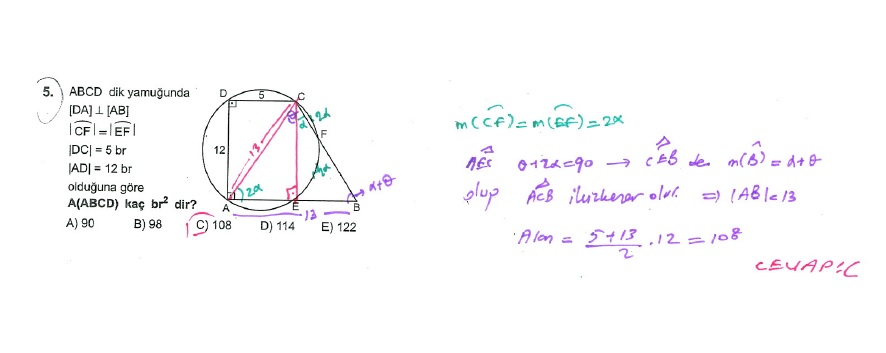 5. ABCD dik yamuğunda
[DA] ⊥ [AB]
|CF| = |EF|
|DC| = 5 br
|AD| = 12 br
olduğuna göre
A(ABCD) kaç br² dir?
A) 90 B) 98 C) 108 D) 114 E) 122
D 5 C
θ α 2α
F
12 13
2α
α+θ
A E B
13
m(CF) = m(EF) = 2α
AEC θ+2α=90 → CEB de m(B) = α+θ
olup ACB ikizkenar olur. ⇒ |AB|=13
Alan = 5+13/2 . 12 = 108
CEVAP:C